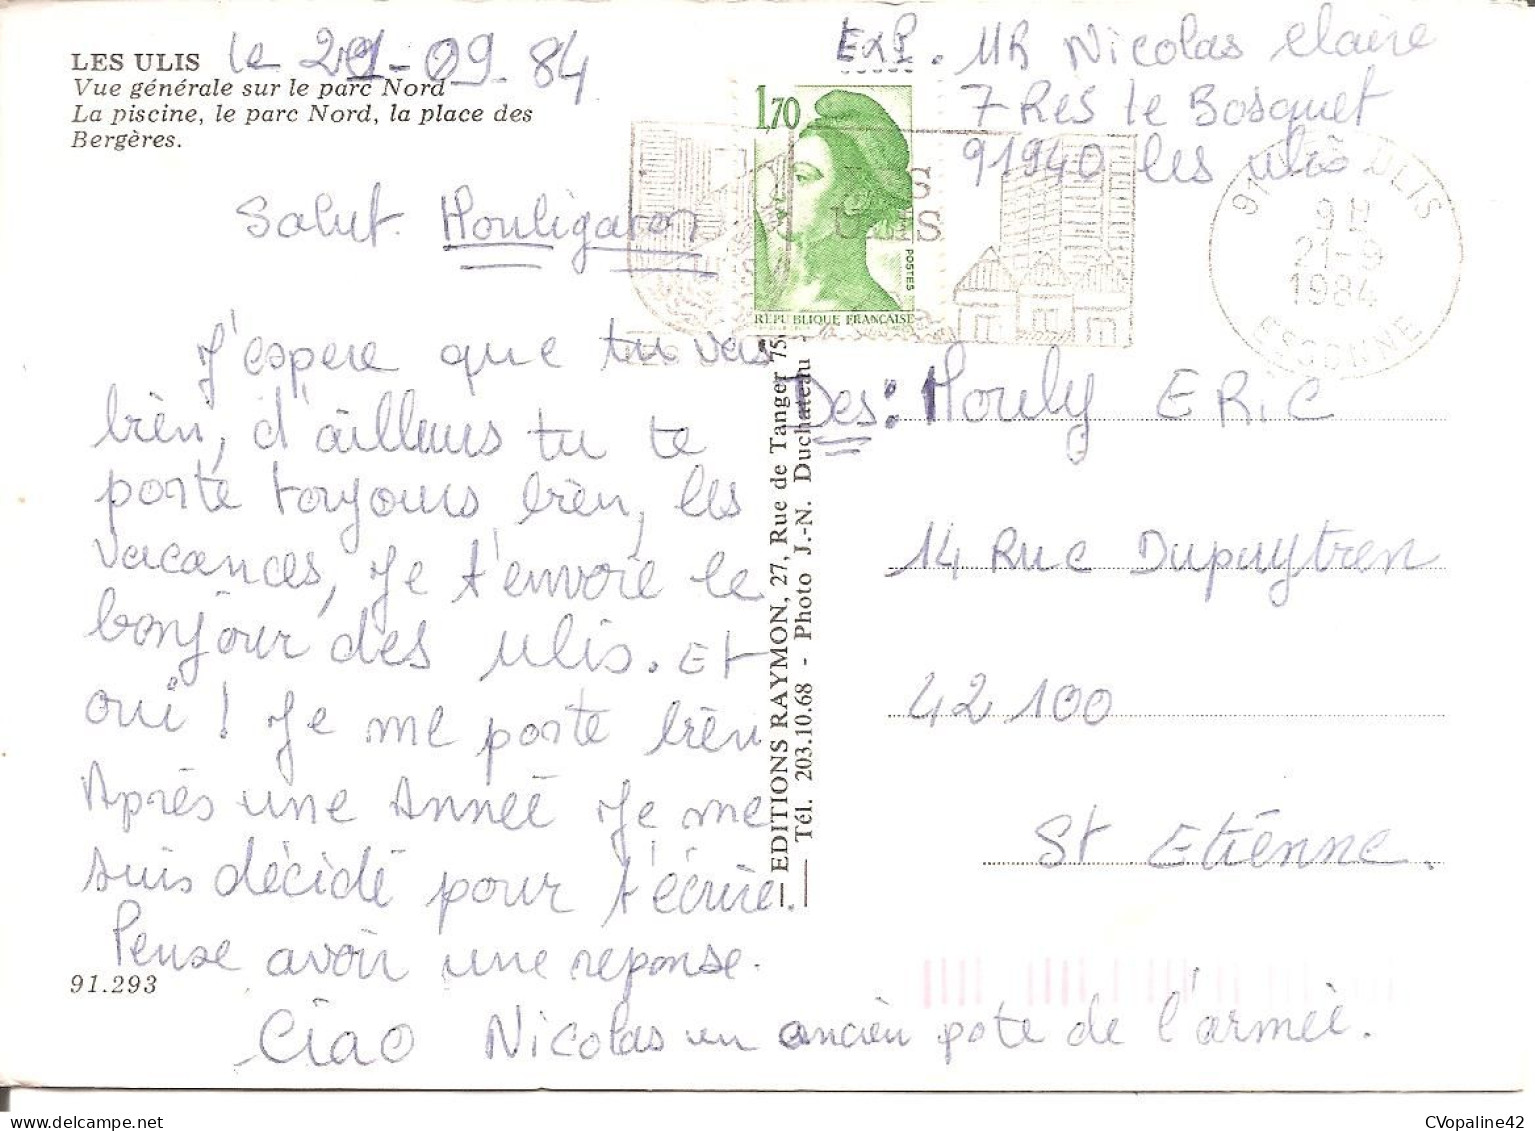 LES ULIS le 21-09-84
Vue générale sur le parc Nord
La piscine, le parc Nord, la place des
Bergères.
EXP. MR Nicolas Claire
7 Res le Bosquet
91940 les ulis
1,70
POSTES
REPUBLIQUE FRANÇAISE
LES
ULIS
91 LES ULIS
9H
21-9
1984
ESSONNE
Salut Mouligaron
J'espere que tu vas
bien, d'ailleurs tu te
porte toujours bien, les
vacances, Je t'envoie le
bonjour des ulis. Et
oui ! Je me porte bien
Après une Année Je me
suis décidé pour t'écrire.
Pense avoir une reponse.
Ciao Nicolas un ancien pote de l'armée.
Des: Mouly ERIC
14 Rue Dupuytren
42100
St Etienne.
EDITIONS RAYMON, 27, Rue de Tanger 75
Tél. 203.10.68 - Photo J.-N. Duchateau
91.293
CVopaline42